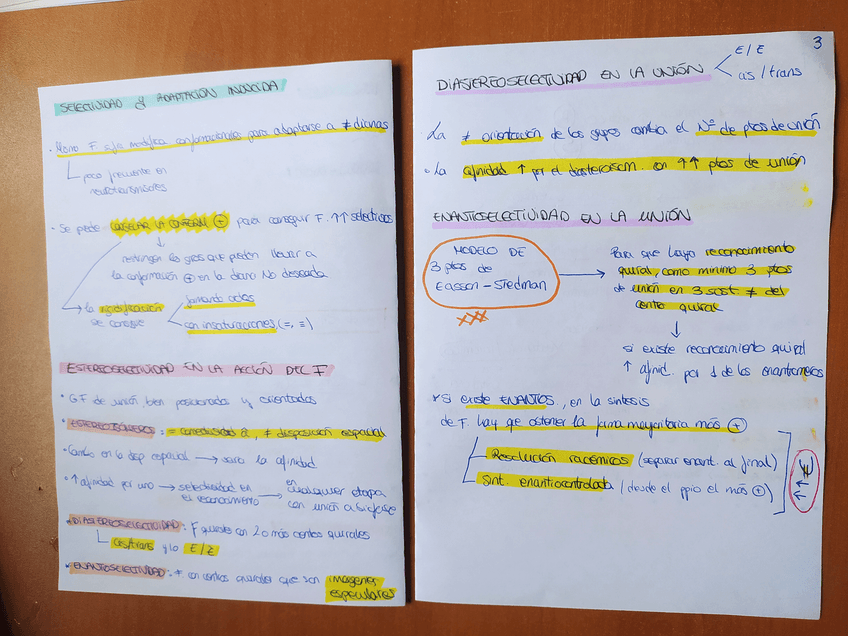 SELECTIVIDAD y ADAPTACIÓN INDUCIDA
· Mismo F sufre modifica conformacionales para adaptarse a ≠ dianas
poco frecuente en
neurotransmisores
· Se puede CONGELAR LA CONFORM ⊕ para conseguir F. ↑↑ selectivos
restringen los giros que pueden llevar a
la conformación ⊕ en la diana No deseada
→ la rigidificación
se consigue
formando ciclos
con insaturaciones (=, ≡)
ESTEREOSELECTIVIDAD EN LA ACCIÓN DEL F
· G.F de unión bien posicionados y orientados
· ESTEREOISÓMEROS: = conectividad, ≠ disposición espacial
· Cambio en la disp espacial → varía la afinidad
· ↑ afinidad por uno → selectividad en el reconocimiento → en cualquier etapa con unión a biofase
· DIASTEREOSELECTIVIDAD: F quirales con 2 o más centros quirales
cis/trans y/o E/Z
· ENANTIOSELECTIVIDAD: ≠ con centros quirales que son imágenes
especulares
3
DIASTEREOSELECTIVIDAD EN LA UNIÓN
E/Z
cis/trans
· La ≠ orientación de los grupos cambia el Nº de ptos de unión
· La afinidad ↑ por el diastereoisom. con ↑↑ ptos de unión
ENANTIOSELECTIVIDAD EN LA UNIÓN
MODELO DE
3 ptos de
Easson-Stedman
→ Para que haya reconocimiento
quiral, como mínimo 3 ptos
de unión en 3 sust. ≠ del
centro quiral
↓
si existe reconocimiento quiral
↑ afinid. por 1 de los enantiómeros
* Si existe ENANTIOS, en la síntesis
de F. hay que obtener la forma mayoritaria más ⊕
Resolución racémicos (separar enant. al final)
Sínt. enantiocontrolada (desde el ppio el más ⊕)